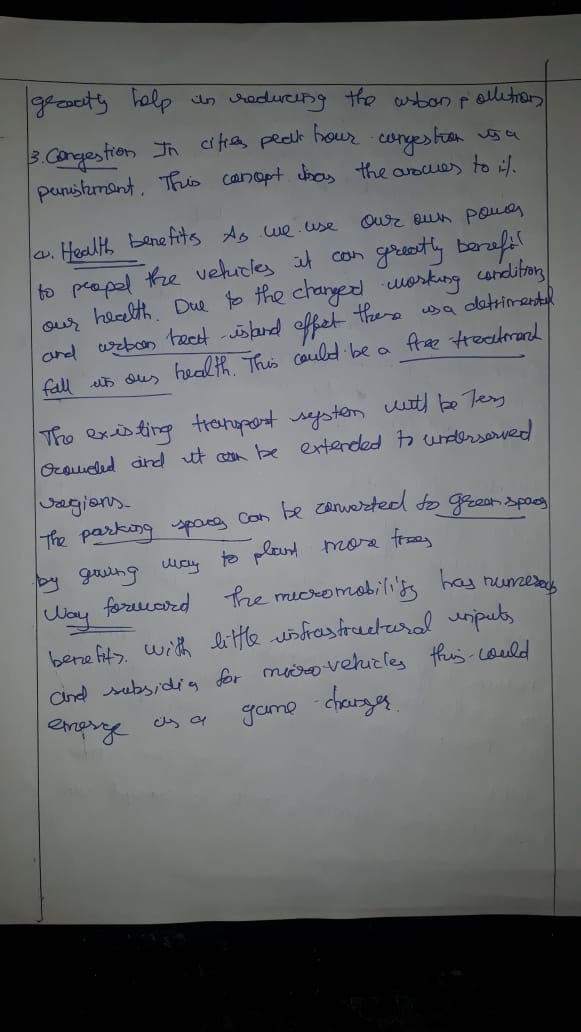 greatly help in reducing the urban pollution
3. Congestion In cities peak hour congestion is a
punishment. This concept has the answer to it.
Health benefits As we use our own power
to propel the vehicles it can greatly benefit
our health. Due to the changed working condition
and urban heat island effect there is a detrimental
fall in our health. This could be a free treatment
The existing transport system will be less
crowded and it can be extended to underserved
regions.
The parking spaces can be converted to green spaces
by giving way to plant more trees
Way forward The micromobility has numerous
benefits. With little infrastructural inputs
and subsidies for micro vehicles this could
emerge as a game changer.